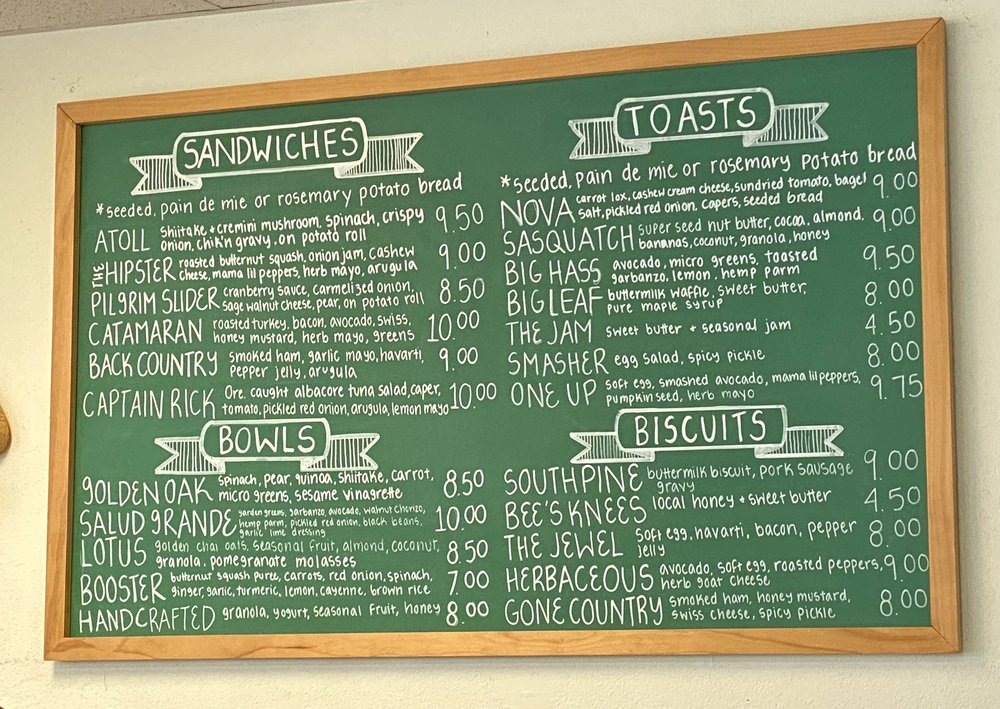 SANDWICHES
*seeded, pain de mie or rosemary potato bread
ATOLL shiitake + cremini mushroom, spinach, crispy 9.50
onion, chik'n gravy, on potato roll
THE HIPSTER roasted butternut squash, onion jam, cashew 9.00
cheese, mama lil peppers, herb mayo, arugula
PILGRIM SLIDER cranberry sauce, carmelized onion, 8.50
sage walnut cheese, pear, on potato roll
CATAMARAN roasted turkey, bacon, avocado, swiss, 10.00
honey mustard, herb mayo, greens
BACK COUNTRY smoked ham, garlic mayo, havarti, 9.00
pepper jelly, arugula
CAPTAIN RICK Ore. caught albacore tuna salad, caper, 10.00
tomato, pickled red onion, arugula, lemon mayo
BOWLS
GOLDEN OAK spinach, pear, quinoa, shiitake, carrot, 8.50
micro greens, sesame vinagrette
SALUD GRANDE garden greens, garbanzo, avocado, walnut chorizo, 10.00
hemp parm, pickled red onion, black beans,
garlic lime dressing
LOTUS golden chai oats, seasonal fruit, almond, coconut, 8.50
granola, pomegranate molasses
BOOSTER butternut squash puree, carrots, red onion, spinach, 7.00
ginger, garlic, turmeric, lemon, cayenne, brown rice
HANDCRAFTED granola, yogurt, seasonal fruit, honey 8.00
TOASTS
*seeded, pain de mie or rosemary potato bread
NOVA carrot lox, cashew cream cheese, sundried tomato, bagel 9.00
salt, pickled red onion, capers, seeded bread
SASQUATCH super seed nut butter, cocoa, almond, 9.00
bananas, coconut, granola, honey
BIG HASS avocado, micro greens, toasted 9.50
garbanzo, lemon, hemp parm
BIG LEAF buttermilk waffle, sweet butter, 8.00
pure maple syrup
THE JAM sweet butter + seasonal jam 4.50
SMASHER egg salad, spicy pickle 8.00
ONE UP soft egg, smashed avocado, mama lil peppers, 9.75
pumpkin seed, herb mayo
BISCUITS
SOUTH PINE buttermilk biscuit, pork sausage 9.00
gravy
BEE'S KNEES local honey + sweet butter 4.50
THE JEWEL soft egg, havarti, bacon, pepper 8.00
jelly
HERBACEOUS avocado, soft egg, roasted peppers, 9.00
herb goat cheese
GONE COUNTRY smoked ham, honey mustard, 8.00
swiss cheese, spicy pickle